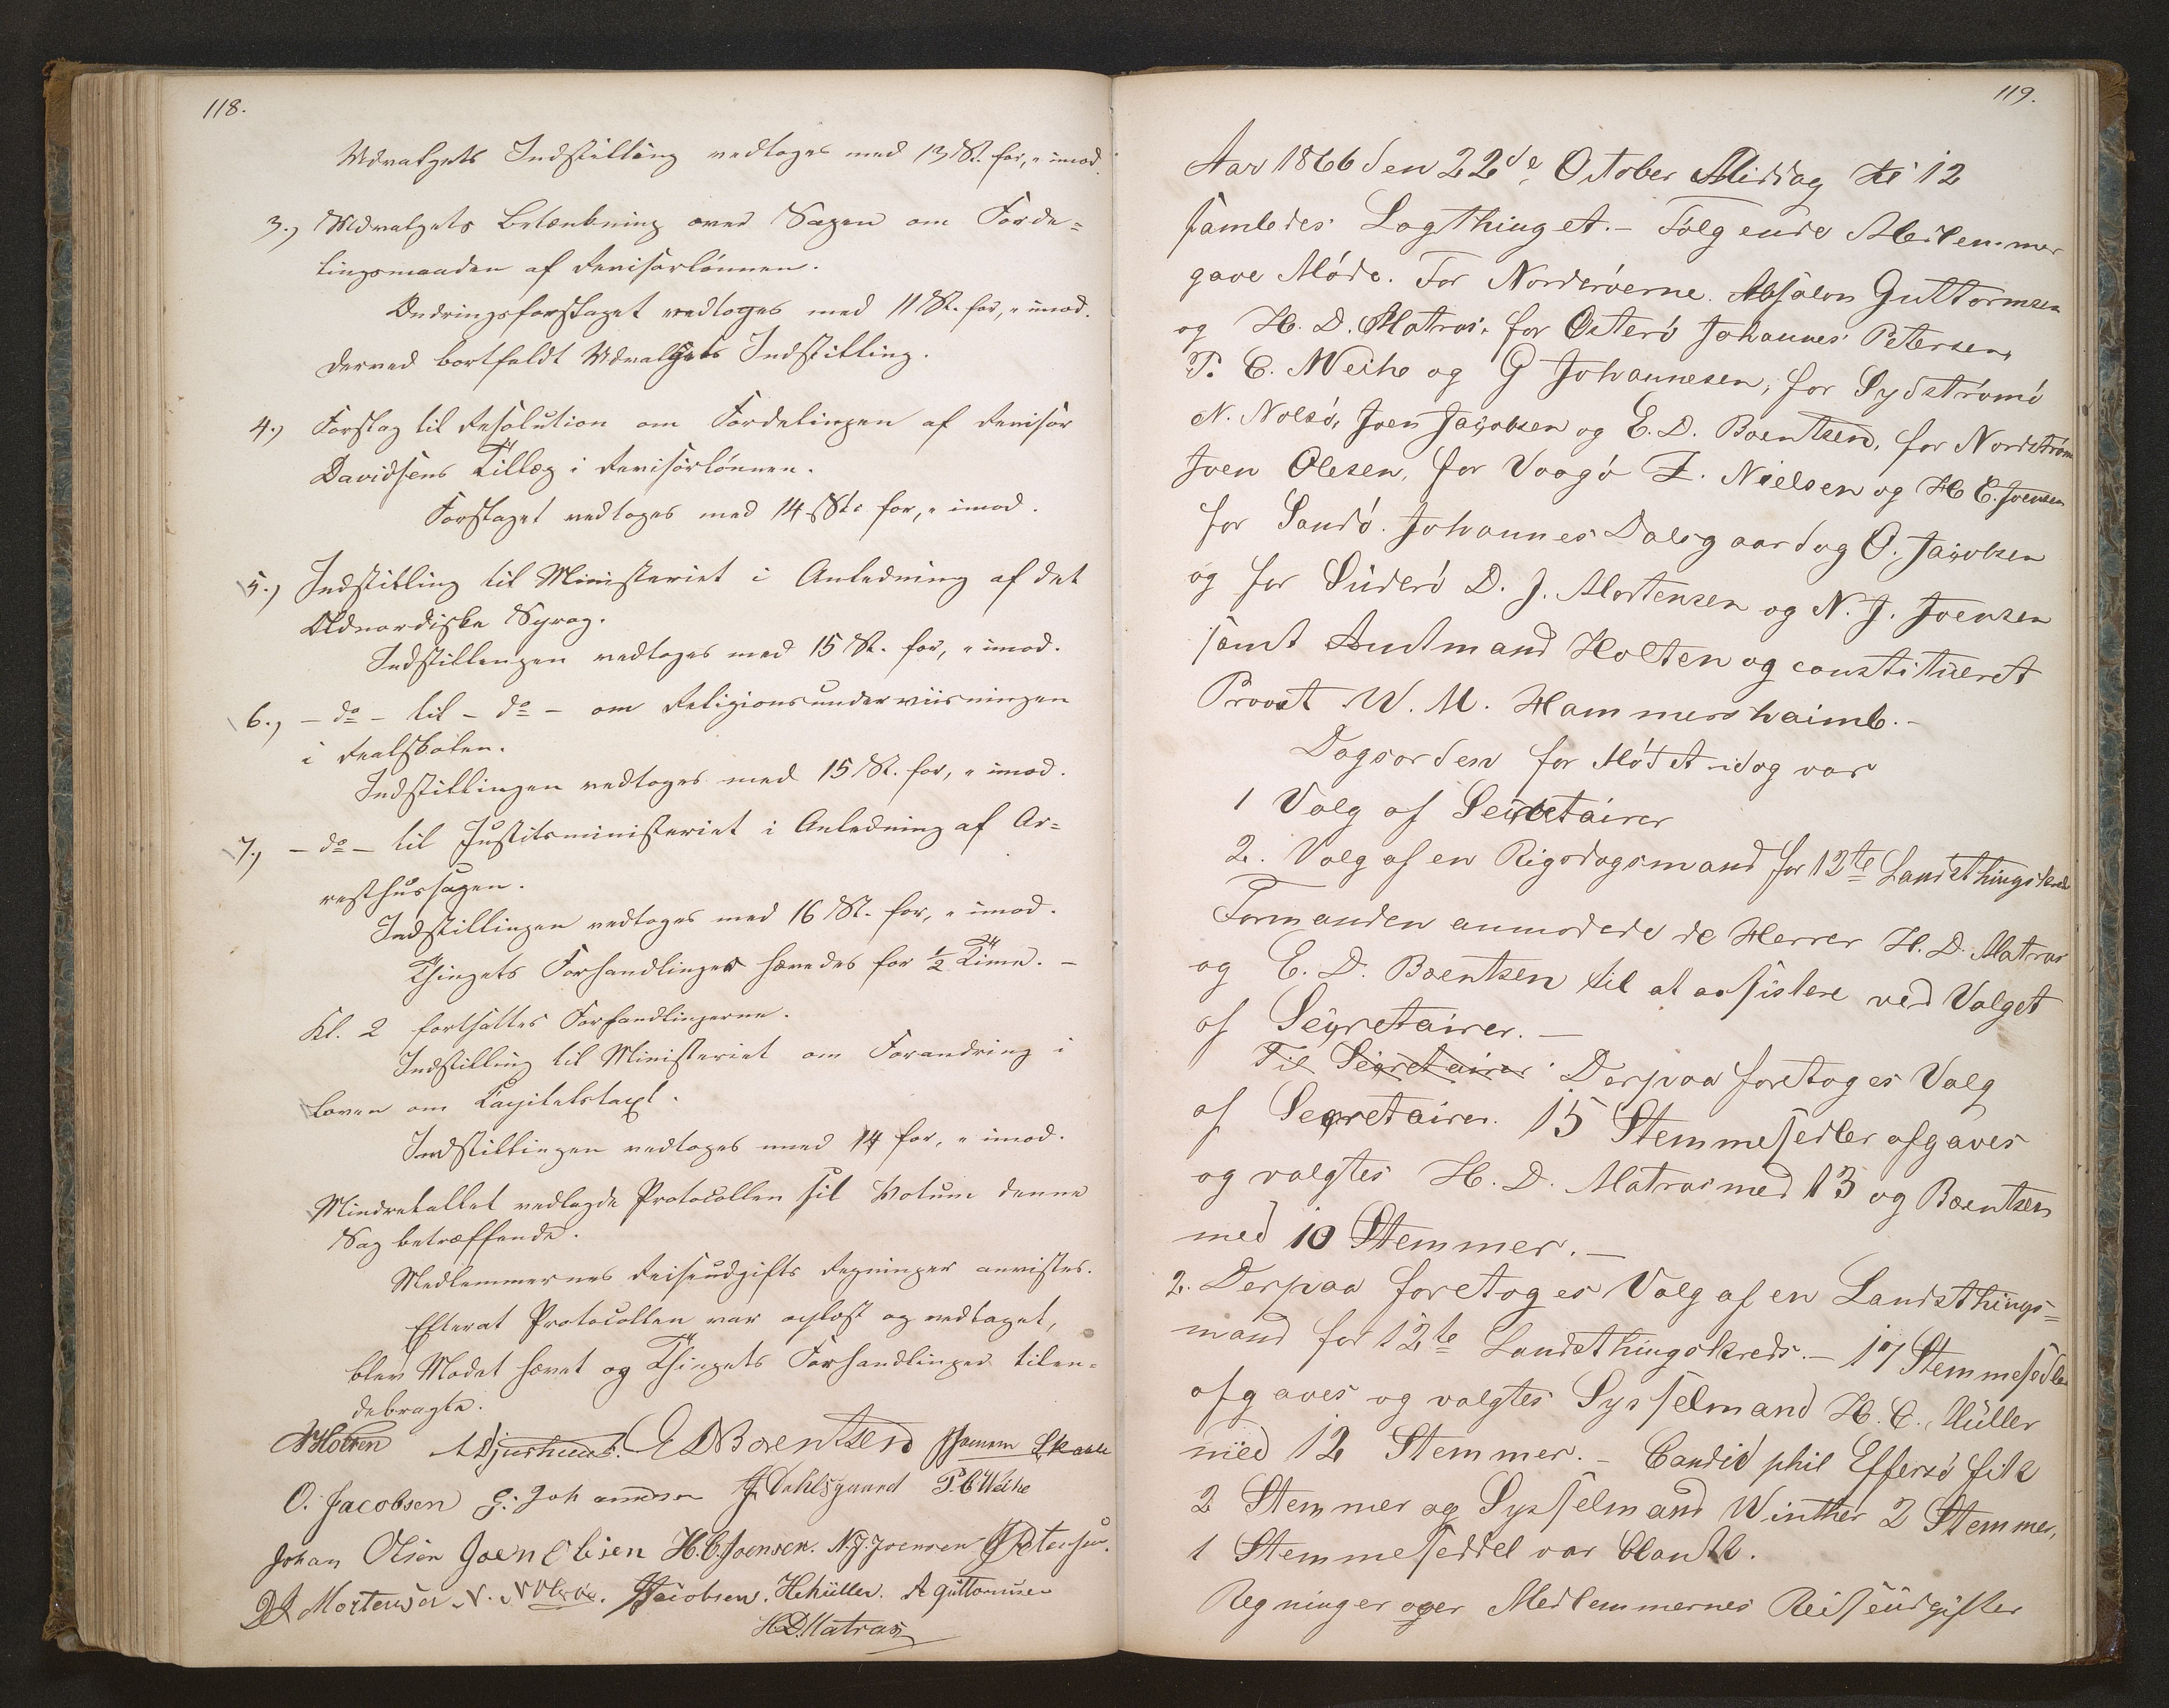 118.
Udvalgets Indstilling vedtoges med 13 St. for, „ imod.
3.) Udvalgets Betænkning over Sagen om Forde=
lingsmaaden af Revisorlönnen.
Ændringsforslaget vedtoges med 11 St. for, „ imod.
derved bortfaldt Udvalgets Indstilling.
4.) Forslag til Resolution om Fordelingen af Revisor
Davidsens Tillæg i Revisorlönnen.
Forslaget vedtoges med 14 St. for, „ imod.
5.) Indstilling til Ministeriet i Anledning af det
Oldnordiske Sprog.
Indstillingen vedtoges med 15 St. for, „ imod.
6.) – do – til – do – om Religionsunderviisningen
i Realskolen.
Indstillingen vedtoges med 15 St. for, „ imod.
7.) – do – til Justitsministeriet i Anledning af Ar=
resthussagen.
Indstillingen vedtoges med 16 St. for, „ imod.
Thingets Forhandlinger hævedes for ½ Time. –
Kl. 2 fortsattes Forhandlingerne.
Indstilling til Ministeriet om Forandring i
Loven om Kapitelstaxt.
Indstillingen vedtoges med 14 for, „ imod.
Mindretallet vedlagde Protocollen sit Votum denne
Sag betræffende.
Medlemmernes Reiseudgifts Regninger anvistes.
Efterat Protocollen var oplæst og vedtaget,
blev Mødet hævet og Thingets Forhandlinger tilen-
debragte.
Holten A Djurhuus. E D Boentzen
O. Jacobsen G: Johannesen J. Dahlsgaard P. C Weihe
Johan Olsen Joen Olesen H. C. Joensen. N. J. Joensen J Petersen.
D J Mortensen N. Nolsø. J Jacobsen. H C Müller. A Guttormsen
H D Matras
119.
Aar 1866 den 22de October Middag Kl 12
samledes Lagthinget. – Følgende Medlemmer
gave Møde. For Norderöerne. Absalon Guttormsen
og H. D. Matras. for Österö Johannes Petersen,
P. C. Weihe og G Johannesen, for Sydströmö
N. Nolsö, Joen Jacobsen og E. D. Boentzen, for Nordström
Joen Olesen, for Vaagö Z. Nielsen og H C. Joensen
for Sandö. Johannes Dalsgaard og O. Jacobsen
og for Suderö D. J. Mortensen og N. J. Joensen
samt Amtmand Holten og constitueret
Provst V. U. Hammershaimb. –
Dagsorden for Mödet idag var
1 Valg af Secretairer
2. Valg af en Rigsdagsmand for 12te Landsthingskreds
Formanden anmodede de Herrer H. D. Matras
og E. D. Boentzen til at assistere ved Valget
af Secretairer. –
Til Secretairer Derpaa foretoges Valg
af Secretairer. 15 Stemmesedler afgaves
og valgtes H. D. Matras med 13 og Boentzen
med 10 Stemmer. –
2. Derpaa foretoges Valg af en Landsthings=
mand for 12te Landsthingskreds. – 17 Stemmesedler
afgaves og valgtes Sysselmand H. C. Müller
med 12 Stemmer. – Candid phil Effersö fik
2 Stemmer og Sysselmand Winther 2 Stemmer,
1 Stemmeseddel var blank.
Regninger over Medlemmernes Reiseudgifter